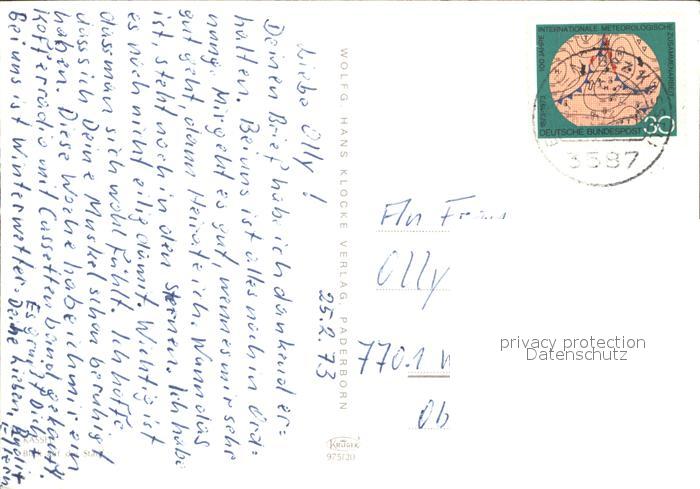 Liebe Olly!
25.2.73
Deinen Brief habe ich dankend er-
halten. Bei uns ist alles noch in Ord-
nung. Mir geht es gut, wenn es mir sehr
gut geht, dann Heirate ich. Wann das
ist, steht noch in den Sternen. Ich habe
es noch nicht eilig damit. Wichtig ist
dass man sich wohl fühlt. Ich hoffe
dass sich Deine Muskel schon beruhigt
haben. Diese Woche habe ich mir ein
Kofferradio mit Cassettenband gekauft
Bei uns ist Winterwetter.
Es grüßt Dich
Deine lieben
Eltern
WOLFG. HANS KLOCKE VERLAG, PADERBORN
KRÜGER
975/20
KASSEL
100 JAHRE INTERNATIONALE METEOROLOGISCHE ZUSAMMENARBEIT
1873-1973
DEUTSCHE BUNDESPOST 30
3587
An Frau
Olly
7701 W
Ob
privacy protection
Datenschutz